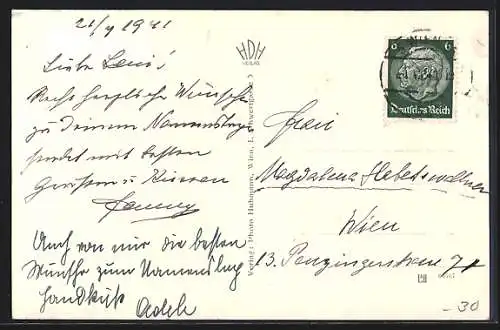 21/7 1941
Liebe Leni!
Recht herzliche Wünsche
zu Deinem Namenstage
sendet mit besten
Grüssen u. Küssen
Fanny
Auch von mir die besten
Wünsche zum Namenstag
Handkuß
Adolf
HDH
Verlag: Johann Hubmann, Wien,
6 6
Deutsches Reich
Frau
Magdalena
Wien
13. Penzingerstrasse 71
-30